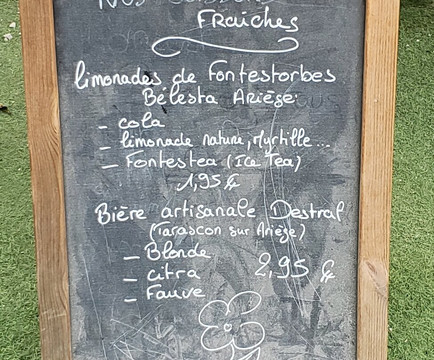 Nos Boissons
FRaîches
limonades de Fontestorbes
Bélesta Ariège:
- cola
- limonade nature, Myrtille...
- Fontestea (Ice Tea)
1,95 €
Bière artisanale Destral
(Tarascon sur Ariège)
- Blonde
- citra 2,95 €
- Fauve